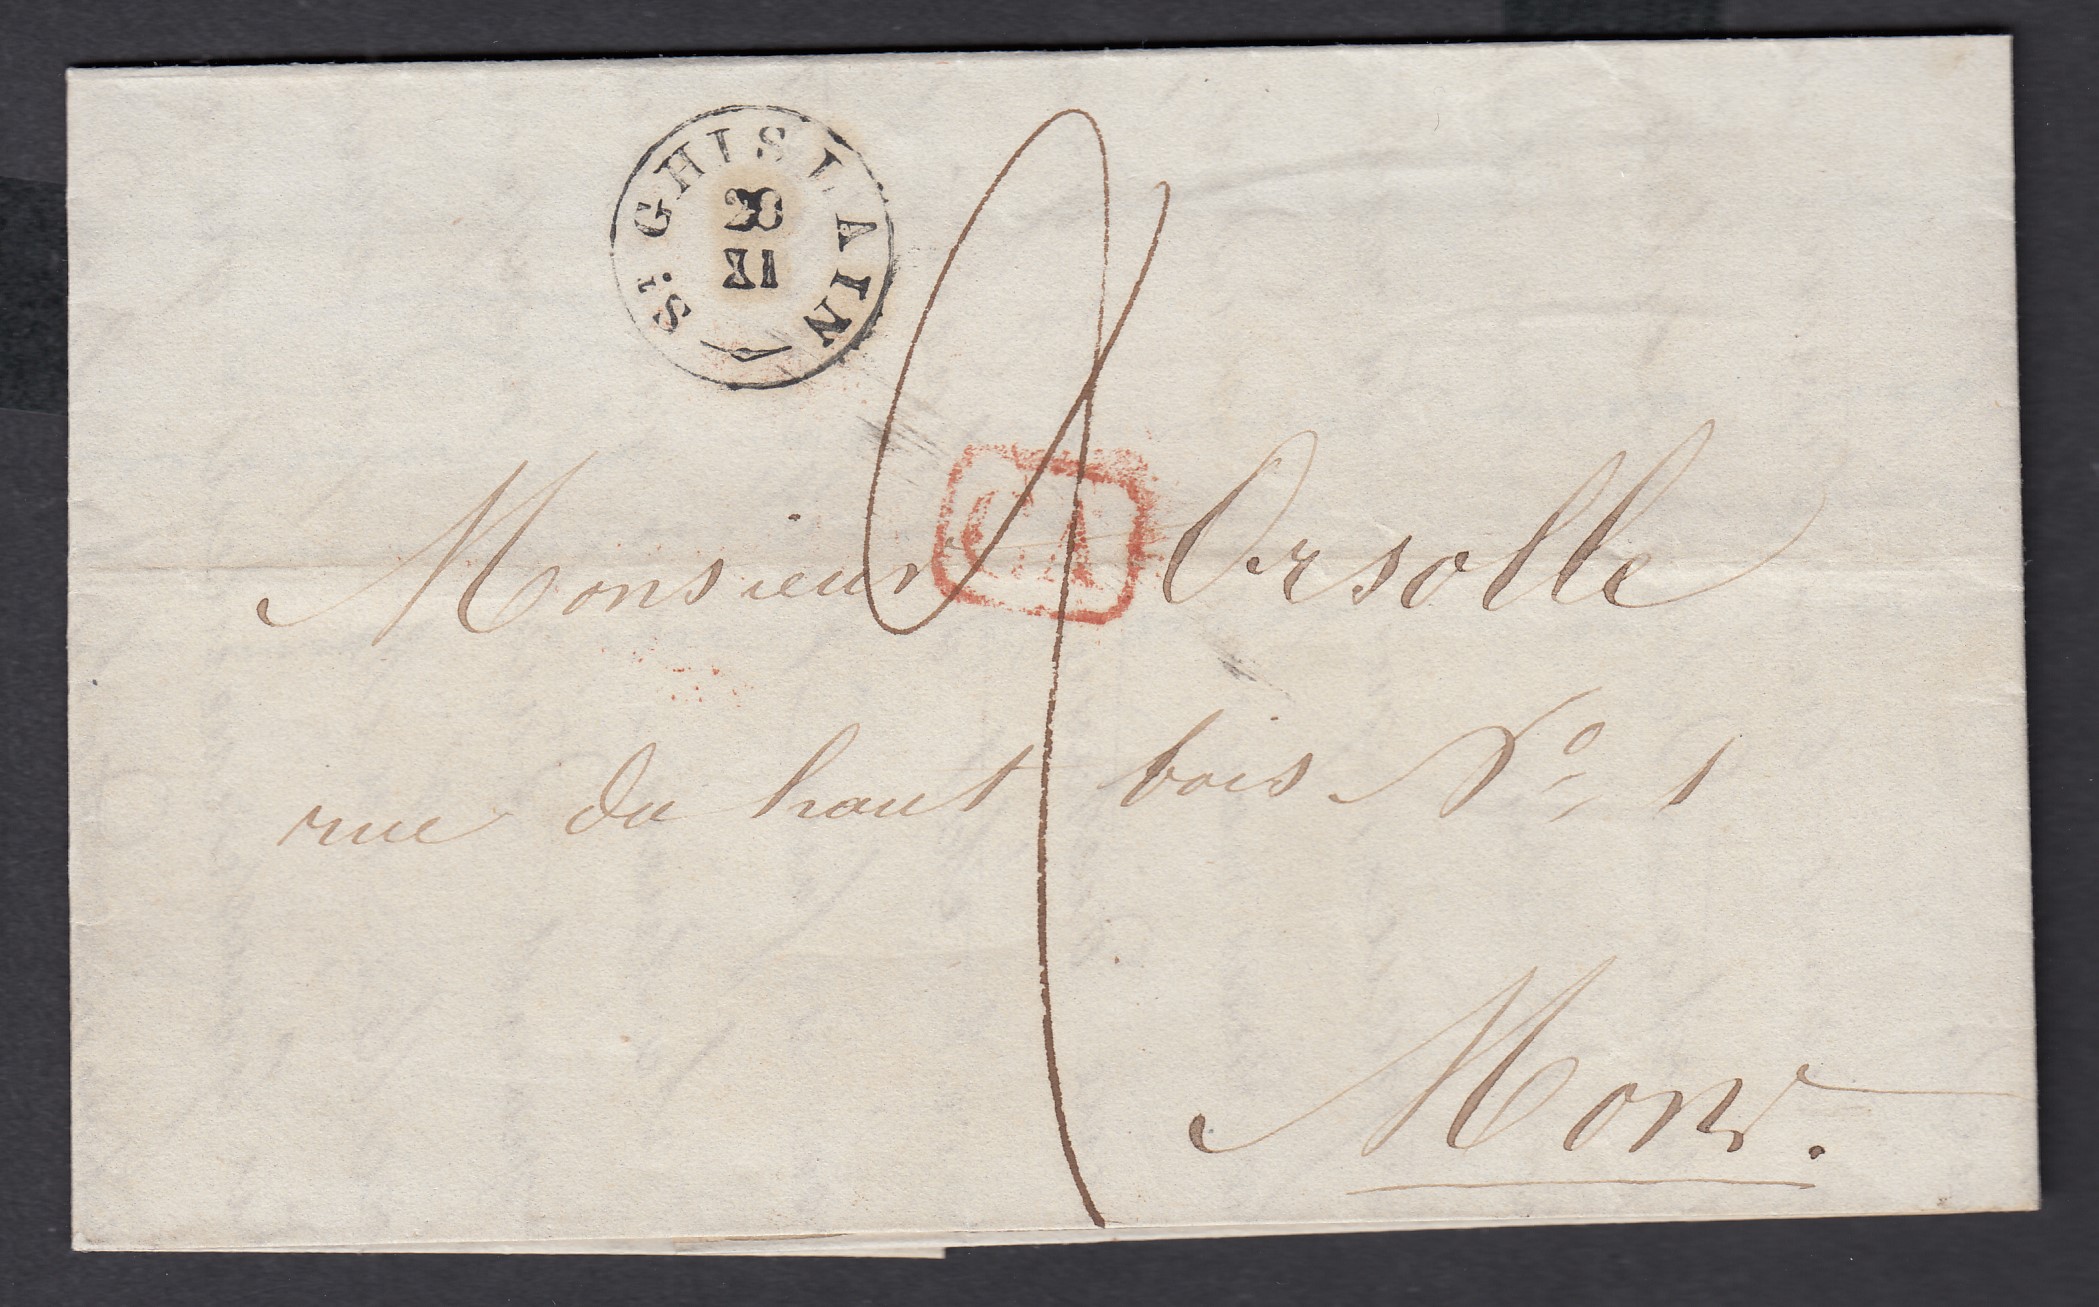 St. GHISLAIN
XI
CA
Monsieur Orsolle
rue du haut bois No 1
Mons.